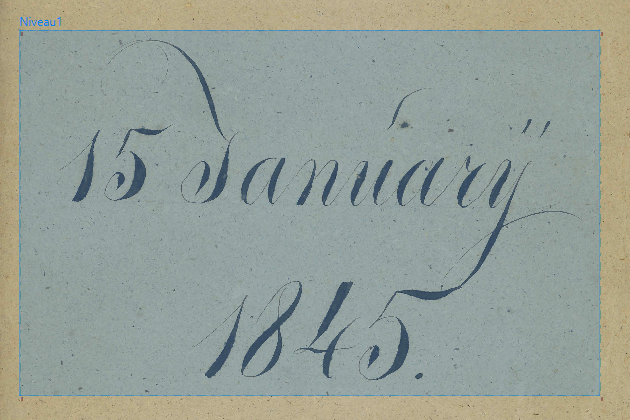 Niveau1
15 Januarÿ
1845.